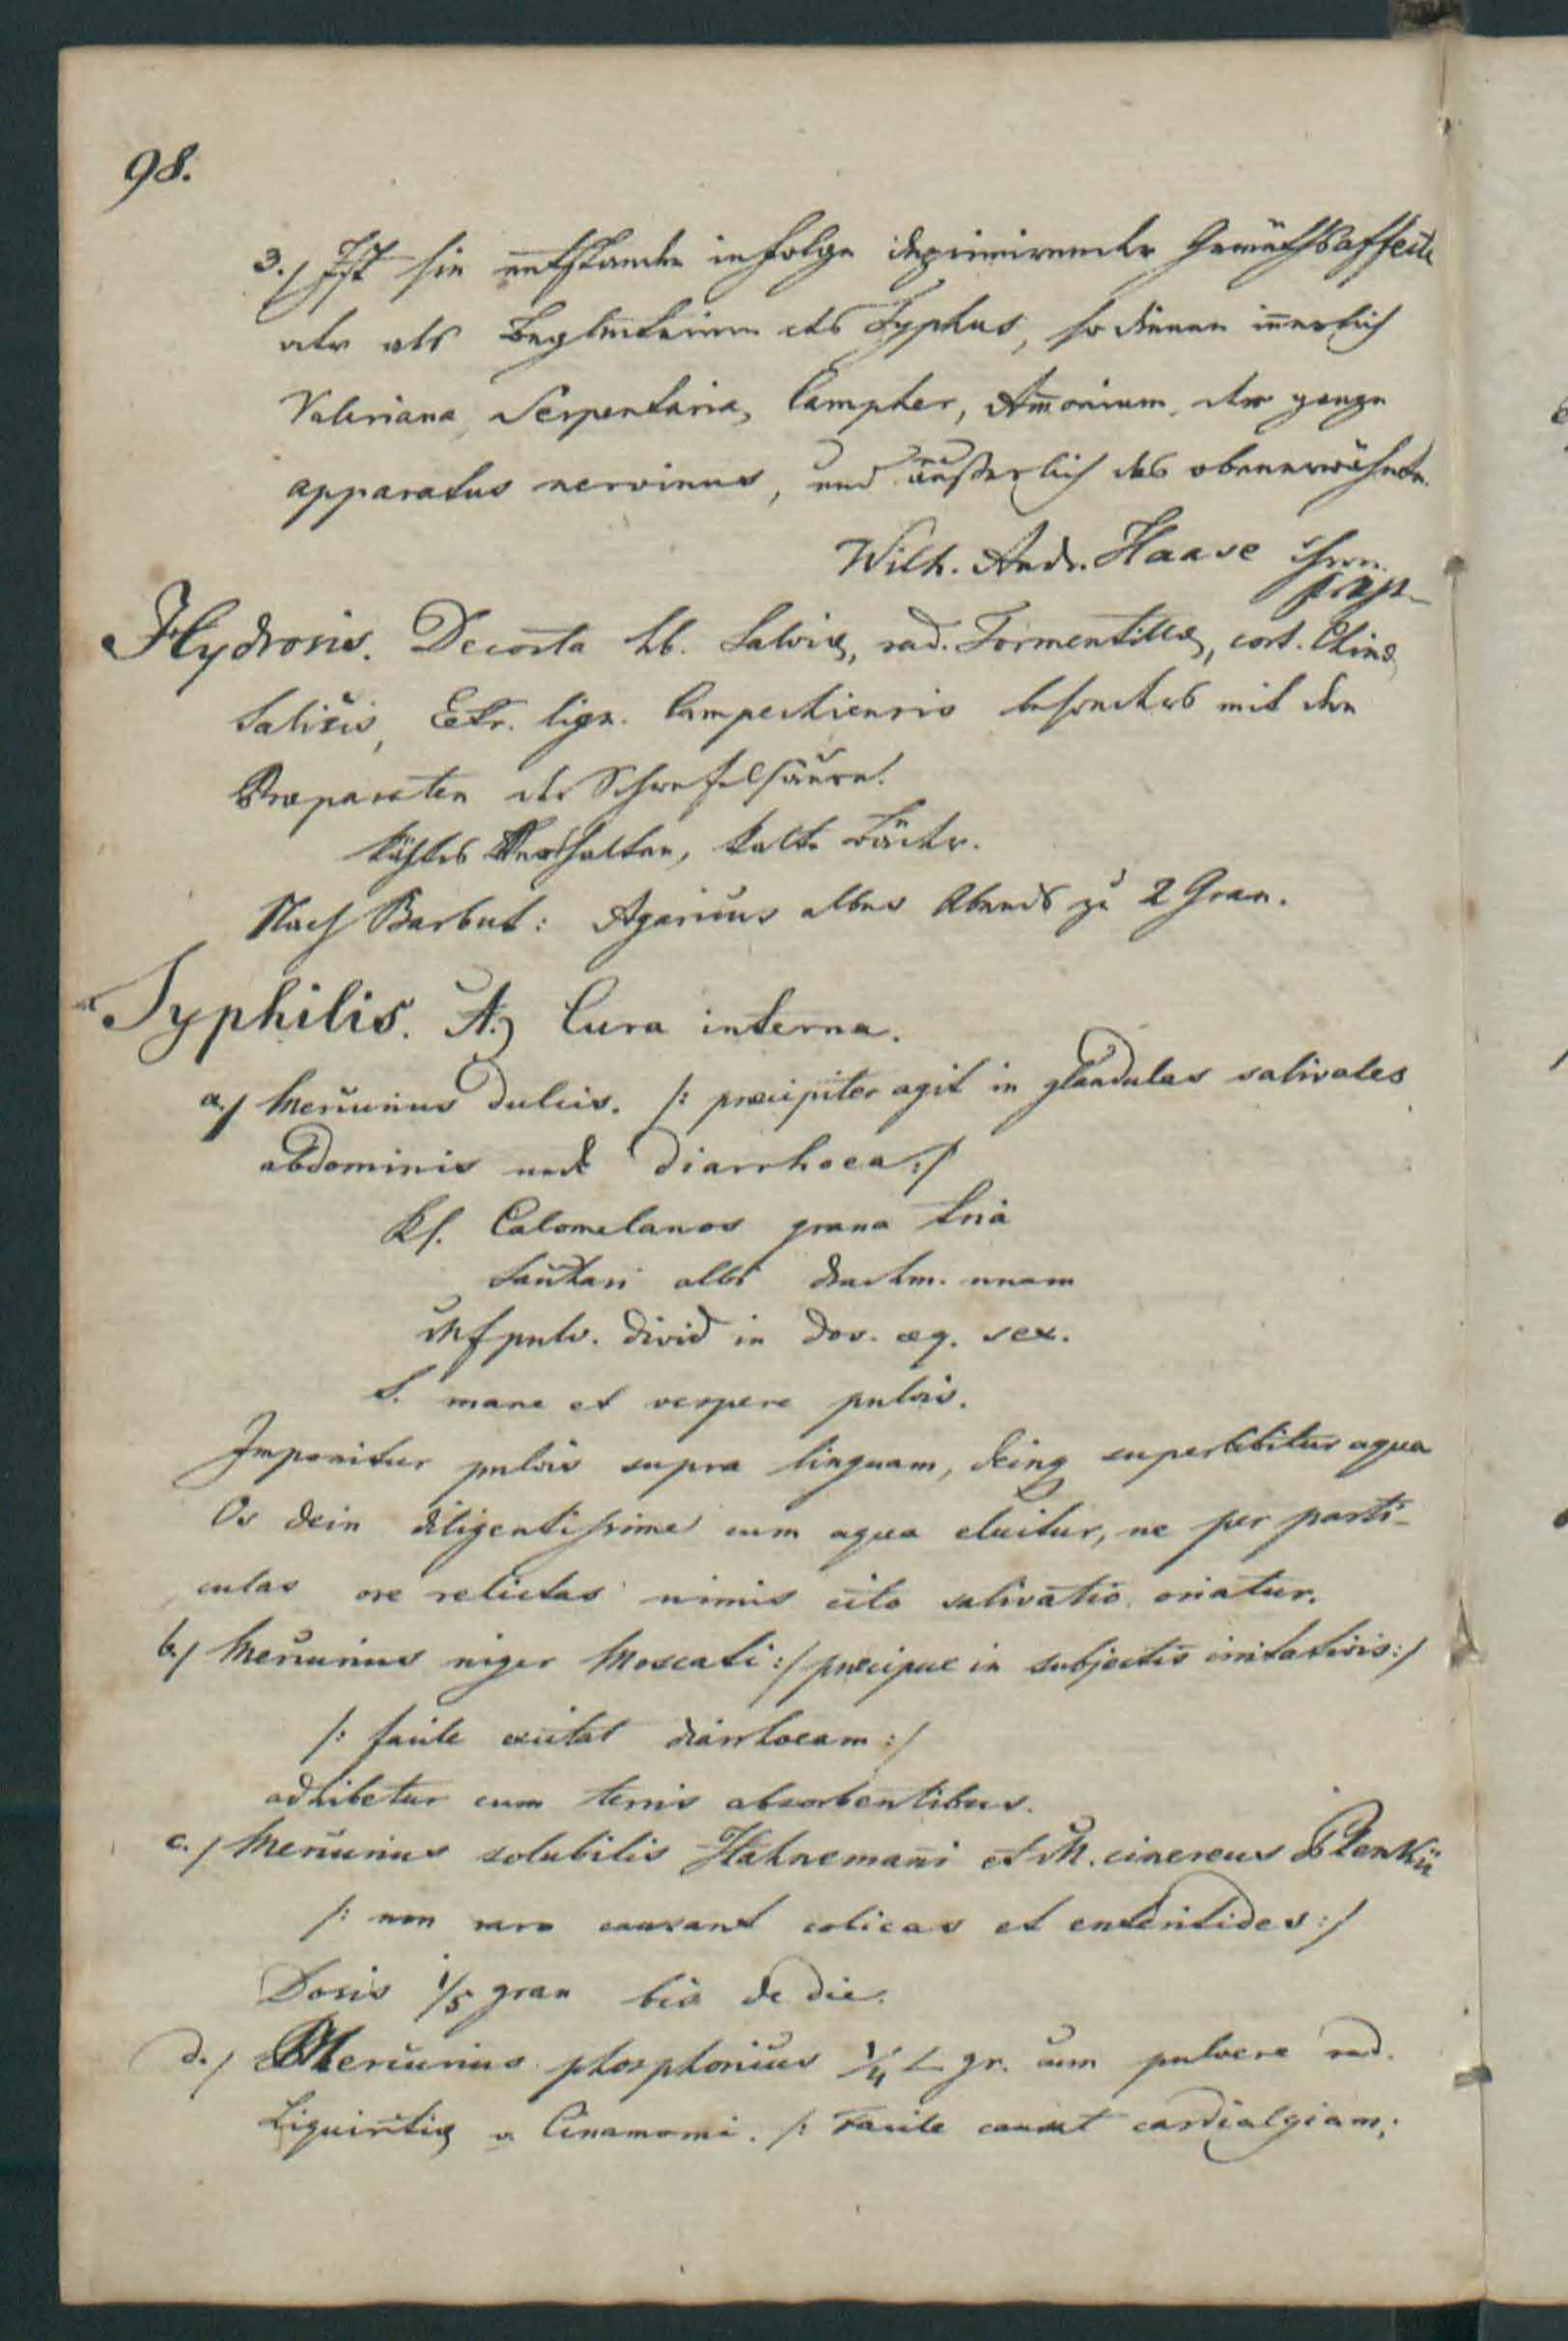 98.
3./ Ist sie entstanden in Folge deprimirender Gemüthsaffecte
oder als Begleiterinn des Typhus, so dienen inerlich
Valeriana, Serpentaria, Campher, Amonium, der ganze
apparatus nervinus, und äußerlich das obenerwähnte.
Wilh. Andr. Haase
Hydrosis. Decocta hb. Salviæ, rad. Tormentillæ, cort. Chinæ
Salicis, Extr. lign. Campechiensis besonders mit den
Præparaten der Schwefelsäure.
kühles Verhalten, kalte Bäder.
Nach Barbut: Agaricus albus Abends zu 2 Gran.
Syphilis. A.) Cura interna.
a./ Mercurius dulcis. /: præcipiter agit in glandulas salivales
abdominis und diarrhoea :/
Rf. Calomelanos grana tria
Sacchari albi drachm. unam
Mf pulv. divid in dos. æq. sex.
S. mane et vespere pulvis.
Imponitur pulvis supra linguam, deinq superbibitur aqua
Os dein diligentissime cum aqua eluitur, ne per parti-
culas ore relictas nimis cito salivatio oriatur.
b./ Mercurius niger Moscati :/ præcipue in subjectis irritativis :/
/: facile excitat diarrhoeam :/
adhibetur cum terris absorbentibus.
c./ Mercurius solubilis Hahnemañi et M. cinereus Blenkii
/: non raro causant colicas et enteritides :/
Dosis 1/5 gran bis de die.
d./ Mercurius phosphoricus 1/4 gr. cum pulvere rad.
Liquiritiæ v. Cinamomi. /: Facile causat cardialgiam;